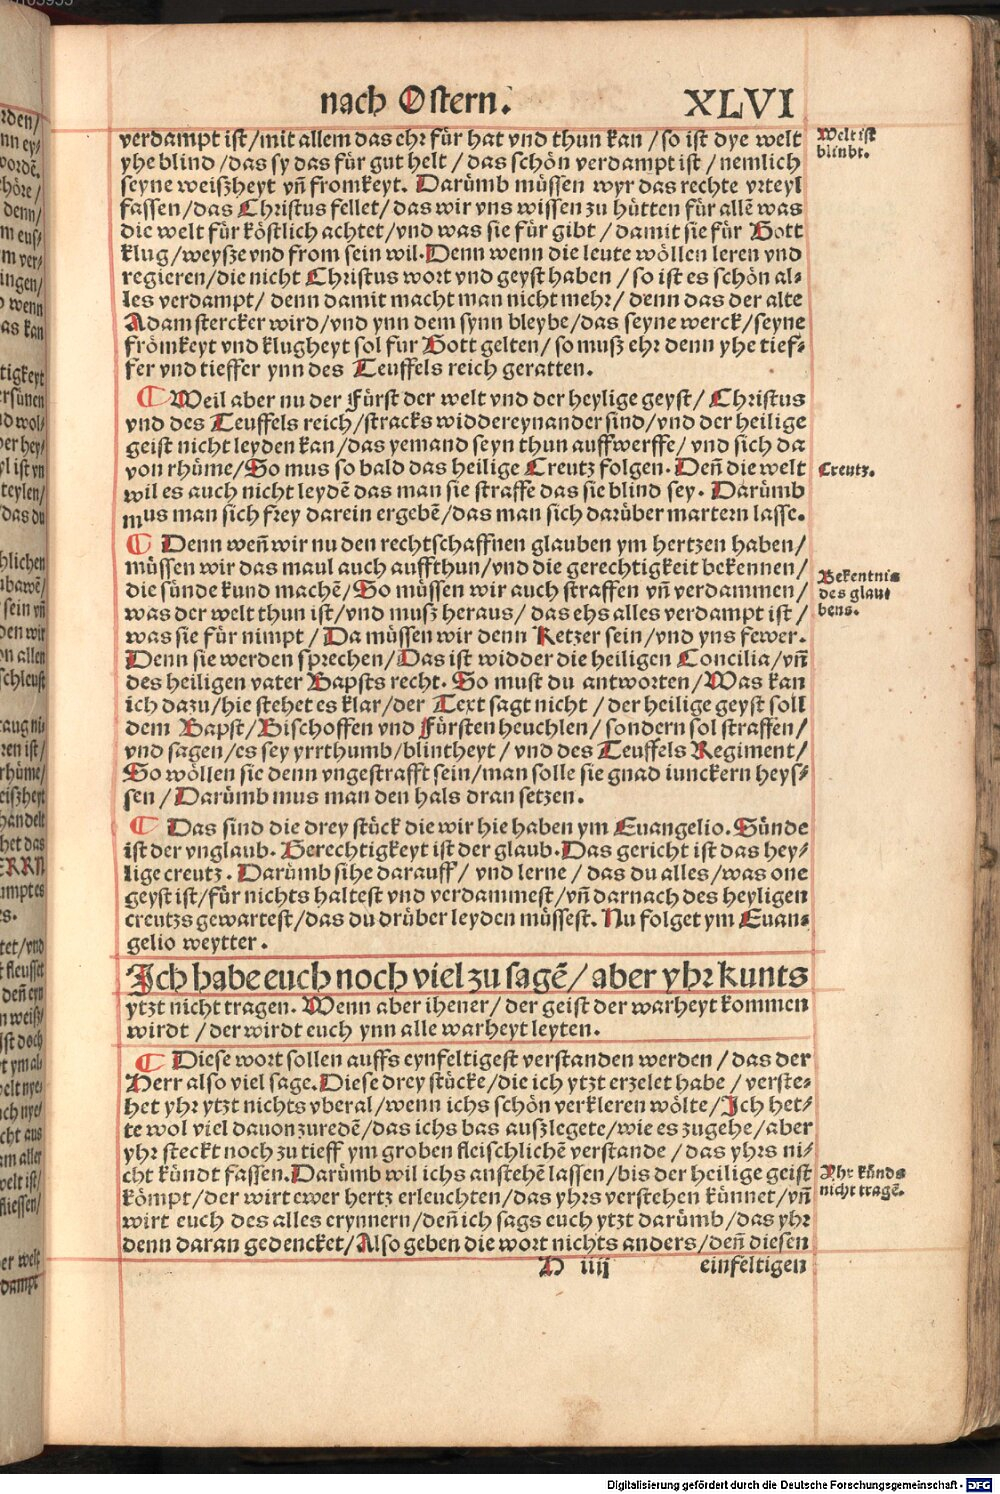 nach Ostern. XLVI
verdampt ist/mit allem das ehr für hat vnd thun kan/so ist dye welt
yhe blind/das sy das für gut helt/das schön verdampt ist/nemlich
seyne weißheyt vñ fromkeyt. Darümb müssen wyr das rechte vrteyl
fassen/das Christus fellet/das wir vns wissen zu hütten für allē was
die welt für köstlich achtet/vnd was sie für gibt/damit sie für Gott
klug/weysze vnd from sein wil. Denn wenn die leute wöllen leren vnd
regieren/die nicht Christus wort vnd geyst haben/so ist es schön al-
les verdampt/denn damit macht man nicht mehr/denn das der alte
Adam stercker wird/vnd ynn dem synn bleybe/das seyne werck/seyne
frömkeyt vnd klugheyt sol fur Gott gelten/so muß ehr denn yhe tief-
fer vnd tieffer ynn des Teuffels reich geratten.
Welt ist
blindt.
¶ Weil aber nu der Fürst der welt vnd der heylige geyst/Christus
vnd des Teuffels reich/stracks widdereynander sind/vnd der heilige
geist nicht leyden kan/das yemand seyn thun auffwerffe/vnd sich da
von rhüme/So mus so bald das heilige Creutz folgen. Deñ die welt
wil es auch nicht leydē das man sie straffe das sie blind sey. Darümb
mus man sich frey darein ergebē/das man sich darüber martern lasse.
Creutz.
¶ Denn weñ wir nu den rechtschaffnen glauben ym hertzen haben/
müssen wir das maul auch auffthun/vnd die gerechtigkeit bekennen/
die sünde kund machē/So müssen wir auch straffen vñ verdammen/
was der welt thun ist/vnd muß heraus/das ehs alles verdampt ist/
was sie für nimpt/Da müssen wir denn Ketzer sein/vnd yns fewer.
Denn sie werden sprechen/Das ist widder die heiligen Concilia/vñ
des heiligen vater Bapsts recht. So must du antworten/Was kan
ich dazu/hie stehet es klar/der Text sagt nicht/der heilige geyst soll
dem Bapst/Bischoffen vnd Fürsten heuchlen/sondern sol straffen/
vnd sagen/es sey yrrthumb/blintheyt/vnd des Teuffels Regiment/
So wöllen sie denn vngestrafft sein/man solle sie gnad iunckern heys-
sen/Darümb mus man den hals dran setzen.
Bekentnis
des glau
bens.
¶ Das sind die drey stück die wir hie haben ym Euangelio. Sünde
ist der vnglaub. Gerechtigkeyt ist der glaub. Das gericht ist das hey-
lige creutz. Darümb sihe darauff/vnd lerne/das du alles/was one
geyst ist/für nichts haltest vnd verdammest/vñ darnach des heyligen
creutzs gewartest/das du drüber leyden müssest. Nu folget ym Euan-
gelio weytter.
Ich habe euch noch viel zu sagē/aber yhr kunts
ytzt nicht tragen. Wenn aber ihener/der geist der warheyt kommen
wirdt/der wirdt euch ynn alle warheyt leyten.
¶ Diese wort sollen auffs eynfeltigest verstanden werden/das der
Herr also viel sage. Diese drey stücke/die ich ytzt erzelet habe/verste-
het yhr ytzt nichts vberal/wenn ichs schön verkleren wölte/Ich het-
te wol viel dauon zuredē/das ichs bas außlegete/wie es zugehe/aber
yhr steckt noch zu tieff ym groben fleischlichē verstande/das yhrs ni-
cht kündt fassen. Darümb wil ichs anstehē lassen/bis der heilige geist
kömpt/der wirt ewer hertz erleuchten/das yhrs verstehen künnet/vñ
wirt euch des alles erynnern/deñ ich sags euch ytzt darümb/das yhr
denn daran gedencket/Also geben die wort nichts anders/deñ diesen
Yhr künds
nicht tragē.
H iiij einfeltigen
Digitalisierung gefördert durch die Deutsche Forschungsgemeinschaft - DFG